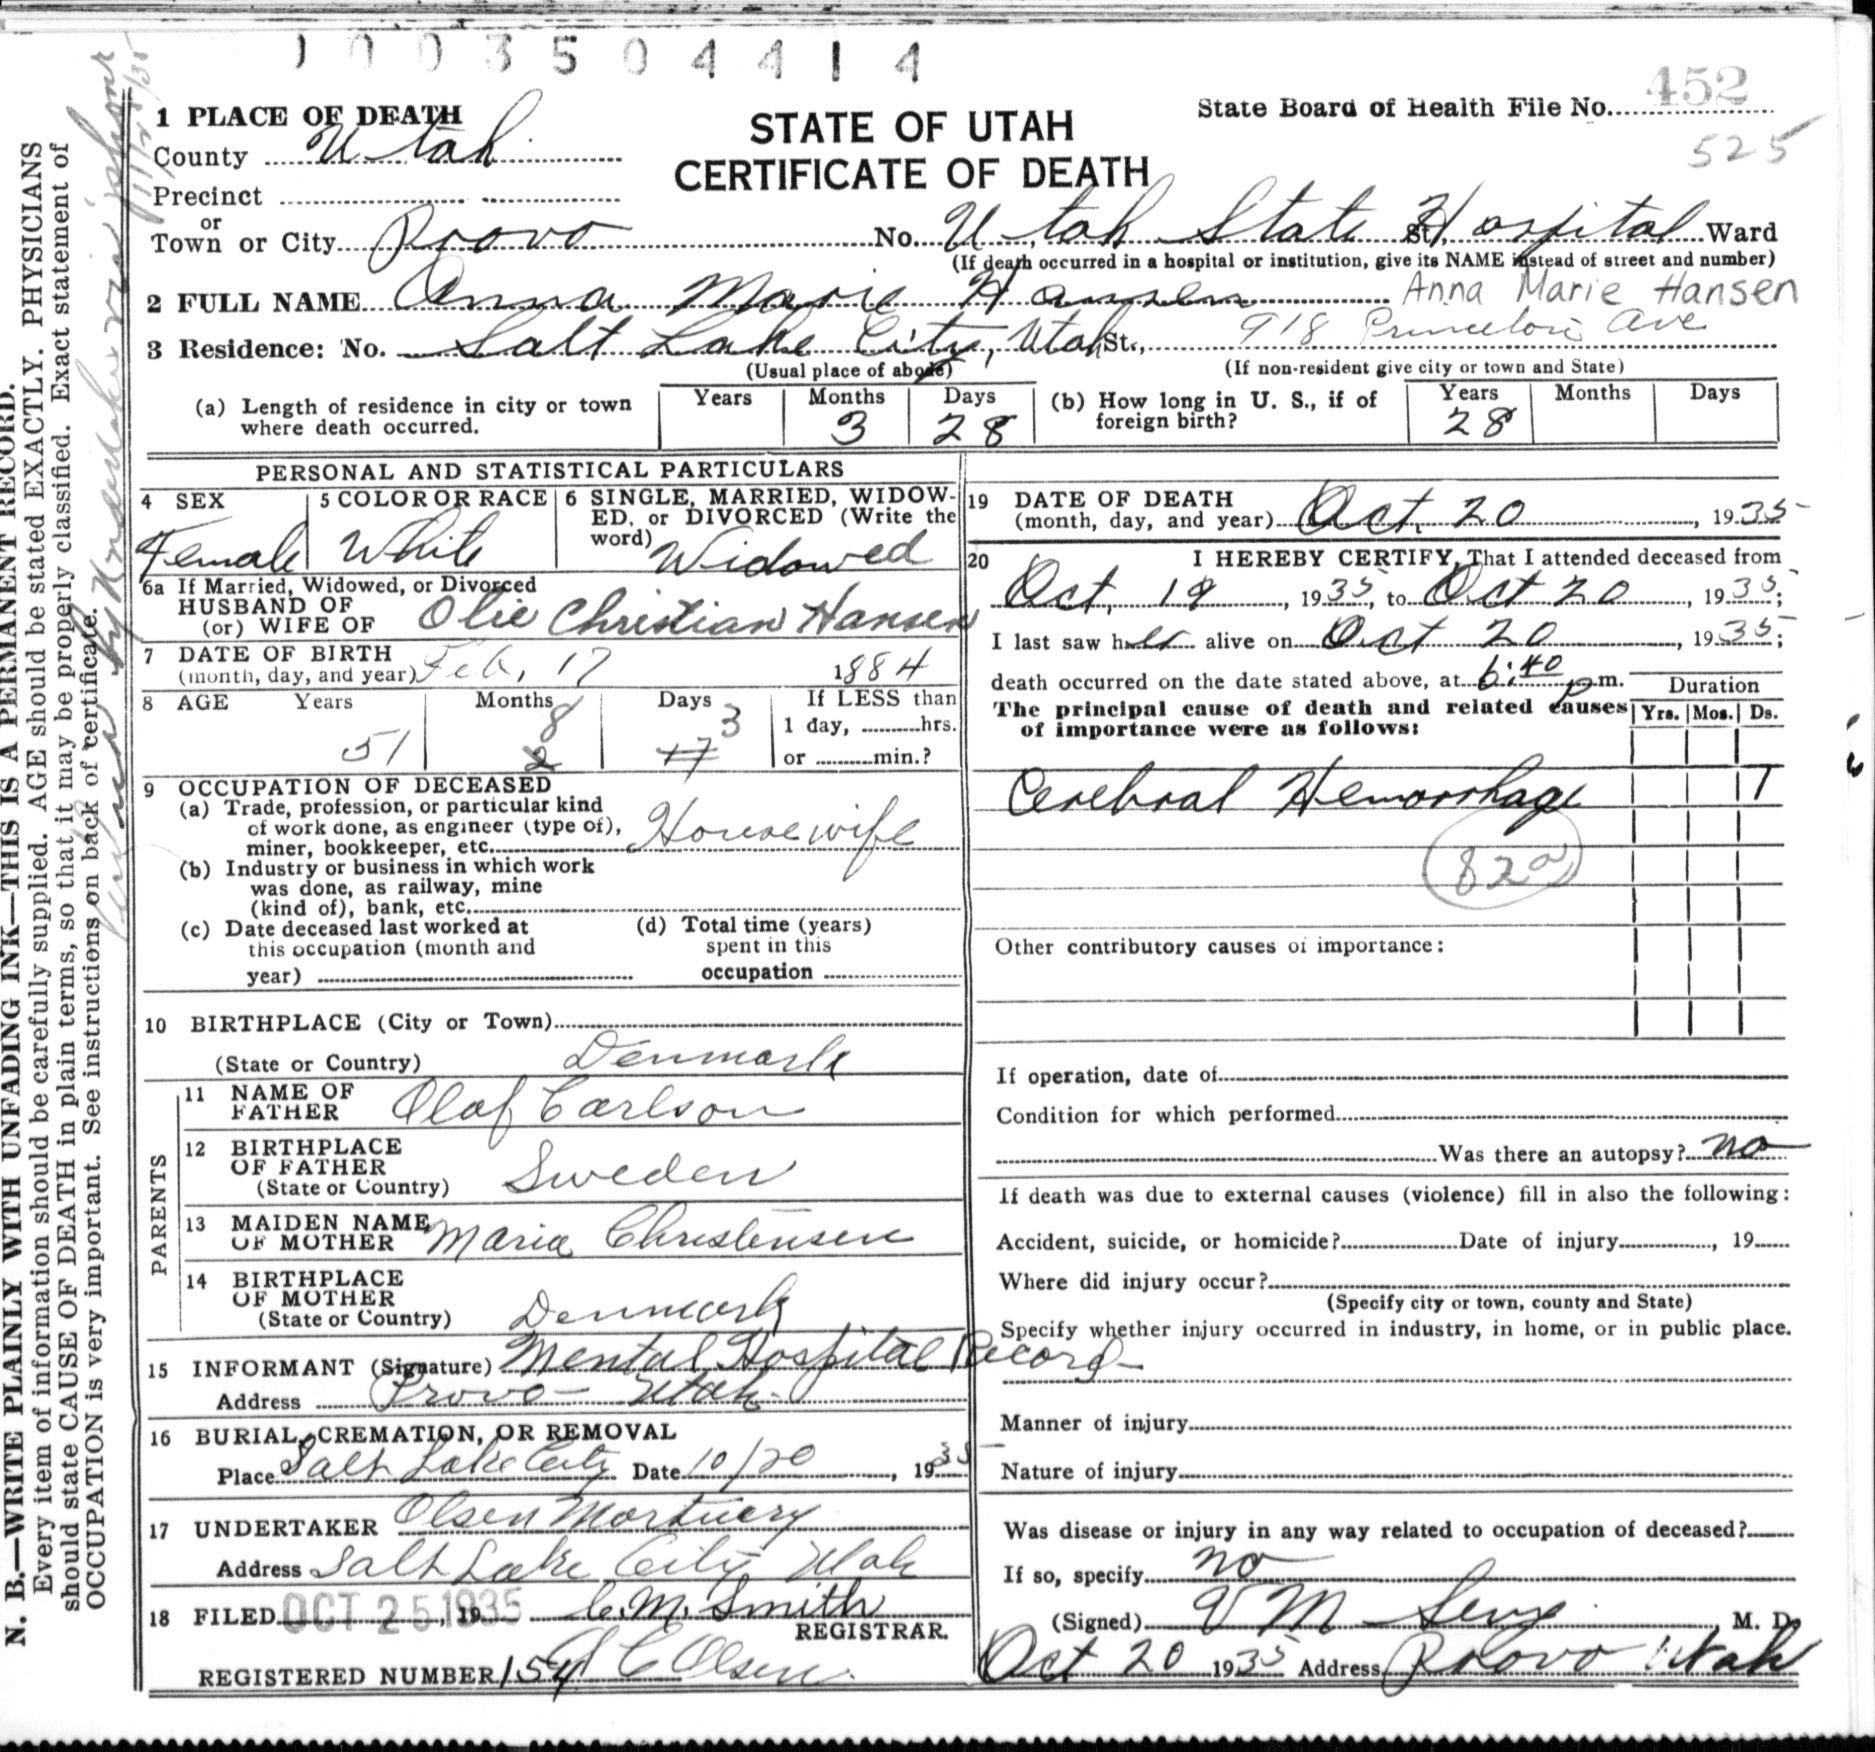 1003504414
State Board of Health File No. 452
525
STATE OF UTAH
CERTIFICATE OF DEATH
1 PLACE OF DEATH
County Utah
Precinct
or
Town or City Provo No. Utah State Hospital St., Ward
(If death occurred in a hospital or institution, give its NAME instead of street and number)
2 FULL NAME Anna Marie Hansen Anna Marie Hansen
3 Residence: No. Salt Lake City, Utah St., 918 Princeton Ave
(Usual place of abode) (If non-resident give city or town and State)
(a) Length of residence in city or town where death occurred. Years Months 3 Days 28
(b) How long in U. S., if of foreign birth? Years 28 Months Days
PERSONAL AND STATISTICAL PARTICULARS
4 SEX Female
5 COLOR OR RACE White
6 SINGLE, MARRIED, WIDOWED, or DIVORCED (Write the word) Widowed
6a If Married, Widowed, or Divorced
HUSBAND OF
(or) WIFE OF Olie Christian Hansen
7 DATE OF BIRTH
(month, day, and year) Feb, 17 1884
8 AGE Years 51 Months 8 2 Days 3 17 If LESS than
1 day, hrs.
or min.?
9 OCCUPATION OF DECEASED
(a) Trade, profession, or particular kind
of work done, as engineer (type of),
miner, bookkeeper, etc. Housewife
(b) Industry or business in which work
was done, as railway, mine
(kind of), bank, etc.
(c) Date deceased last worked at
this occupation (month and
year)
(d) Total time (years)
spent in this
occupation
10 BIRTHPLACE (City or Town)
(State or Country) Denmark
PARENTS
11 NAME OF
FATHER Olaf Carlson
12 BIRTHPLACE
OF FATHER
(State or Country) Sweden
13 MAIDEN NAME
OF MOTHER Maria Christensen
14 BIRTHPLACE
OF MOTHER
(State or Country) Denmark
15 INFORMANT (Signature) Mental Hospital Record
Address Provo - Utah
16 BURIAL, CREMATION, OR REMOVAL
Place Salt Lake City Date 10/20, 1935
17 UNDERTAKER Olsen Mortuery
Address Salt Lake City Utah
18 FILED OCT 25 1935, 19 C. M. Smith
REGISTRAR.
REGISTERED NUMBER 154 C Olsen
19 DATE OF DEATH
(month, day, and year) Oct. 20, 1935
20 I HEREBY CERTIFY, That I attended deceased from
Oct, 19, 1935, to Oct 20, 1935;
I last saw her alive on Oct 20, 1935;
death occurred on the date stated above, at 6:40 p m.
The principal cause of death and related causes
of importance were as follows:
Duration
Yrs. Mos. Ds.
Cerebral Hemorrhage 1
82a
Other contributory causes of importance:
If operation, date of
Condition for which performed
Was there an autopsy? no
If death was due to external causes (violence) fill in also the following:
Accident, suicide, or homicide? Date of injury, 19
Where did injury occur?
(Specify city or town, county and State)
Specify whether injury occurred in industry, in home, or in public place.
Manner of injury
Nature of injury
Was disease or injury in any way related to occupation of deceased?
If so, specify no
(Signed) V M Sevy M. D.
Oct 20 1935 Address Provo Utah
N. B.—WRITE PLAINLY WITH UNFADING INK—THIS IS A PERMANENT RECORD.
Every item of information should be carefully supplied. AGE should be stated EXACTLY. PHYSICIANS
should state CAUSE OF DEATH in plain terms, so that it may be properly classified. Exact statement of
OCCUPATION is very important. See instructions on back of certificate.